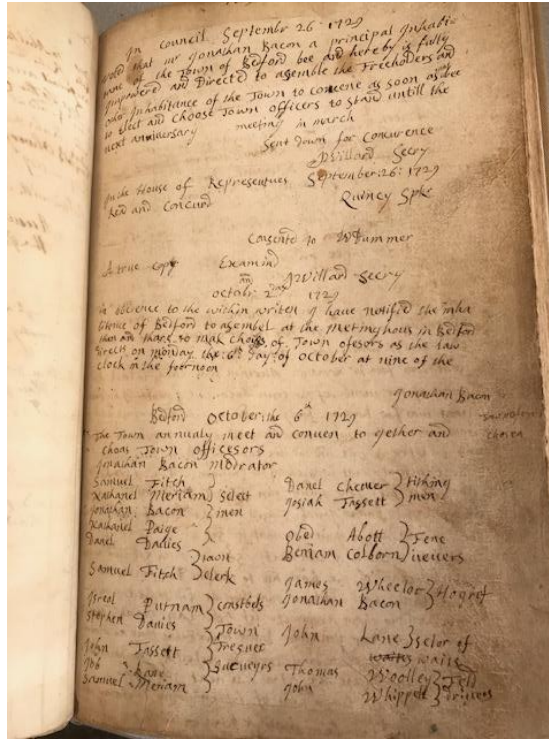 In Council September 26: 1729
voted that mr Jonathan Bacon a principal Inhabi=
tant of the Town of Bedford bee and hereby is fully
Impowerd and Directd to asemble the Freeholders and
other Inhabitance of the Town to convene as soon as bee
to Elect and Choose Town officers to stand untill the
next anniversary meeting in march
Sent Down for Concurence
J Willard Secry
In the House of Representives September: 26: 1729
Read and Concurd
Quincy Spkr
Consented to W Dummer
A true copy Examind
J Willard Secry
octobr 2 1729
in obedence to the within writen I have notified the inha
bitence of Bedford to asembel at the meetinghous in Bedford
then and thare to mak choies of Town ofesors as the law
directs on monday the 6th day of October at nine of the
clock in the foornoon
Jonathan Bacon
Bedford October: the 6th 1729
The Town annualy meet and convien to gether and
choas Town officesors
Town officers
Chosen
Jonathan Bacon modrator
Samuel Fitch
Nathanel Meriam Select
Jonathan Bacon men
Nathanel Paige
Danel Davies
Town
Samuel Fitch Clerk
Isreal Putnam constbels
Stephen Davies
Town
John Fassett Tresuer
Job Lane Surueyrs
Samuel Meriam
Danel Cheever tishing
Josiah Fassett men
Obed Abott Fene
Beniam Colborn ueuers
James Wheeler Hogref
Jonathan Bacon
John Lane selor of
waits
Thomas Woolley Fell
John Whippell drivers